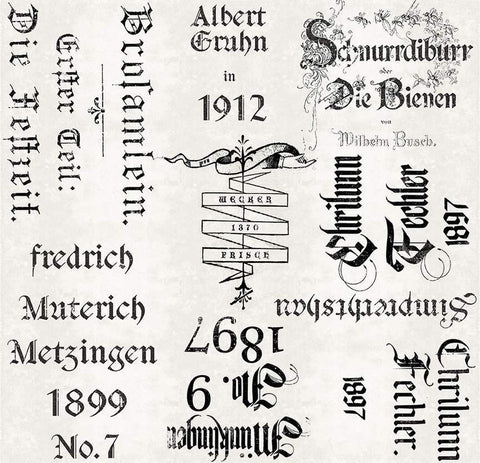 Broſamlein.
Erſter Teil:
Die Feſtzeit.
Albert
Gruhn
in
1912
Schnurrdiburr
oder
Die Bienen
von
Wilhelm Busch.
WECKER
1870
FRISCH
Chrilumn
Fechler
1897
Simprechtshau
fredrich
Muterich
Metzingen
1899
No. 7
Münklingen
No. 9
1897
Chrilumn
Fechler.
1897